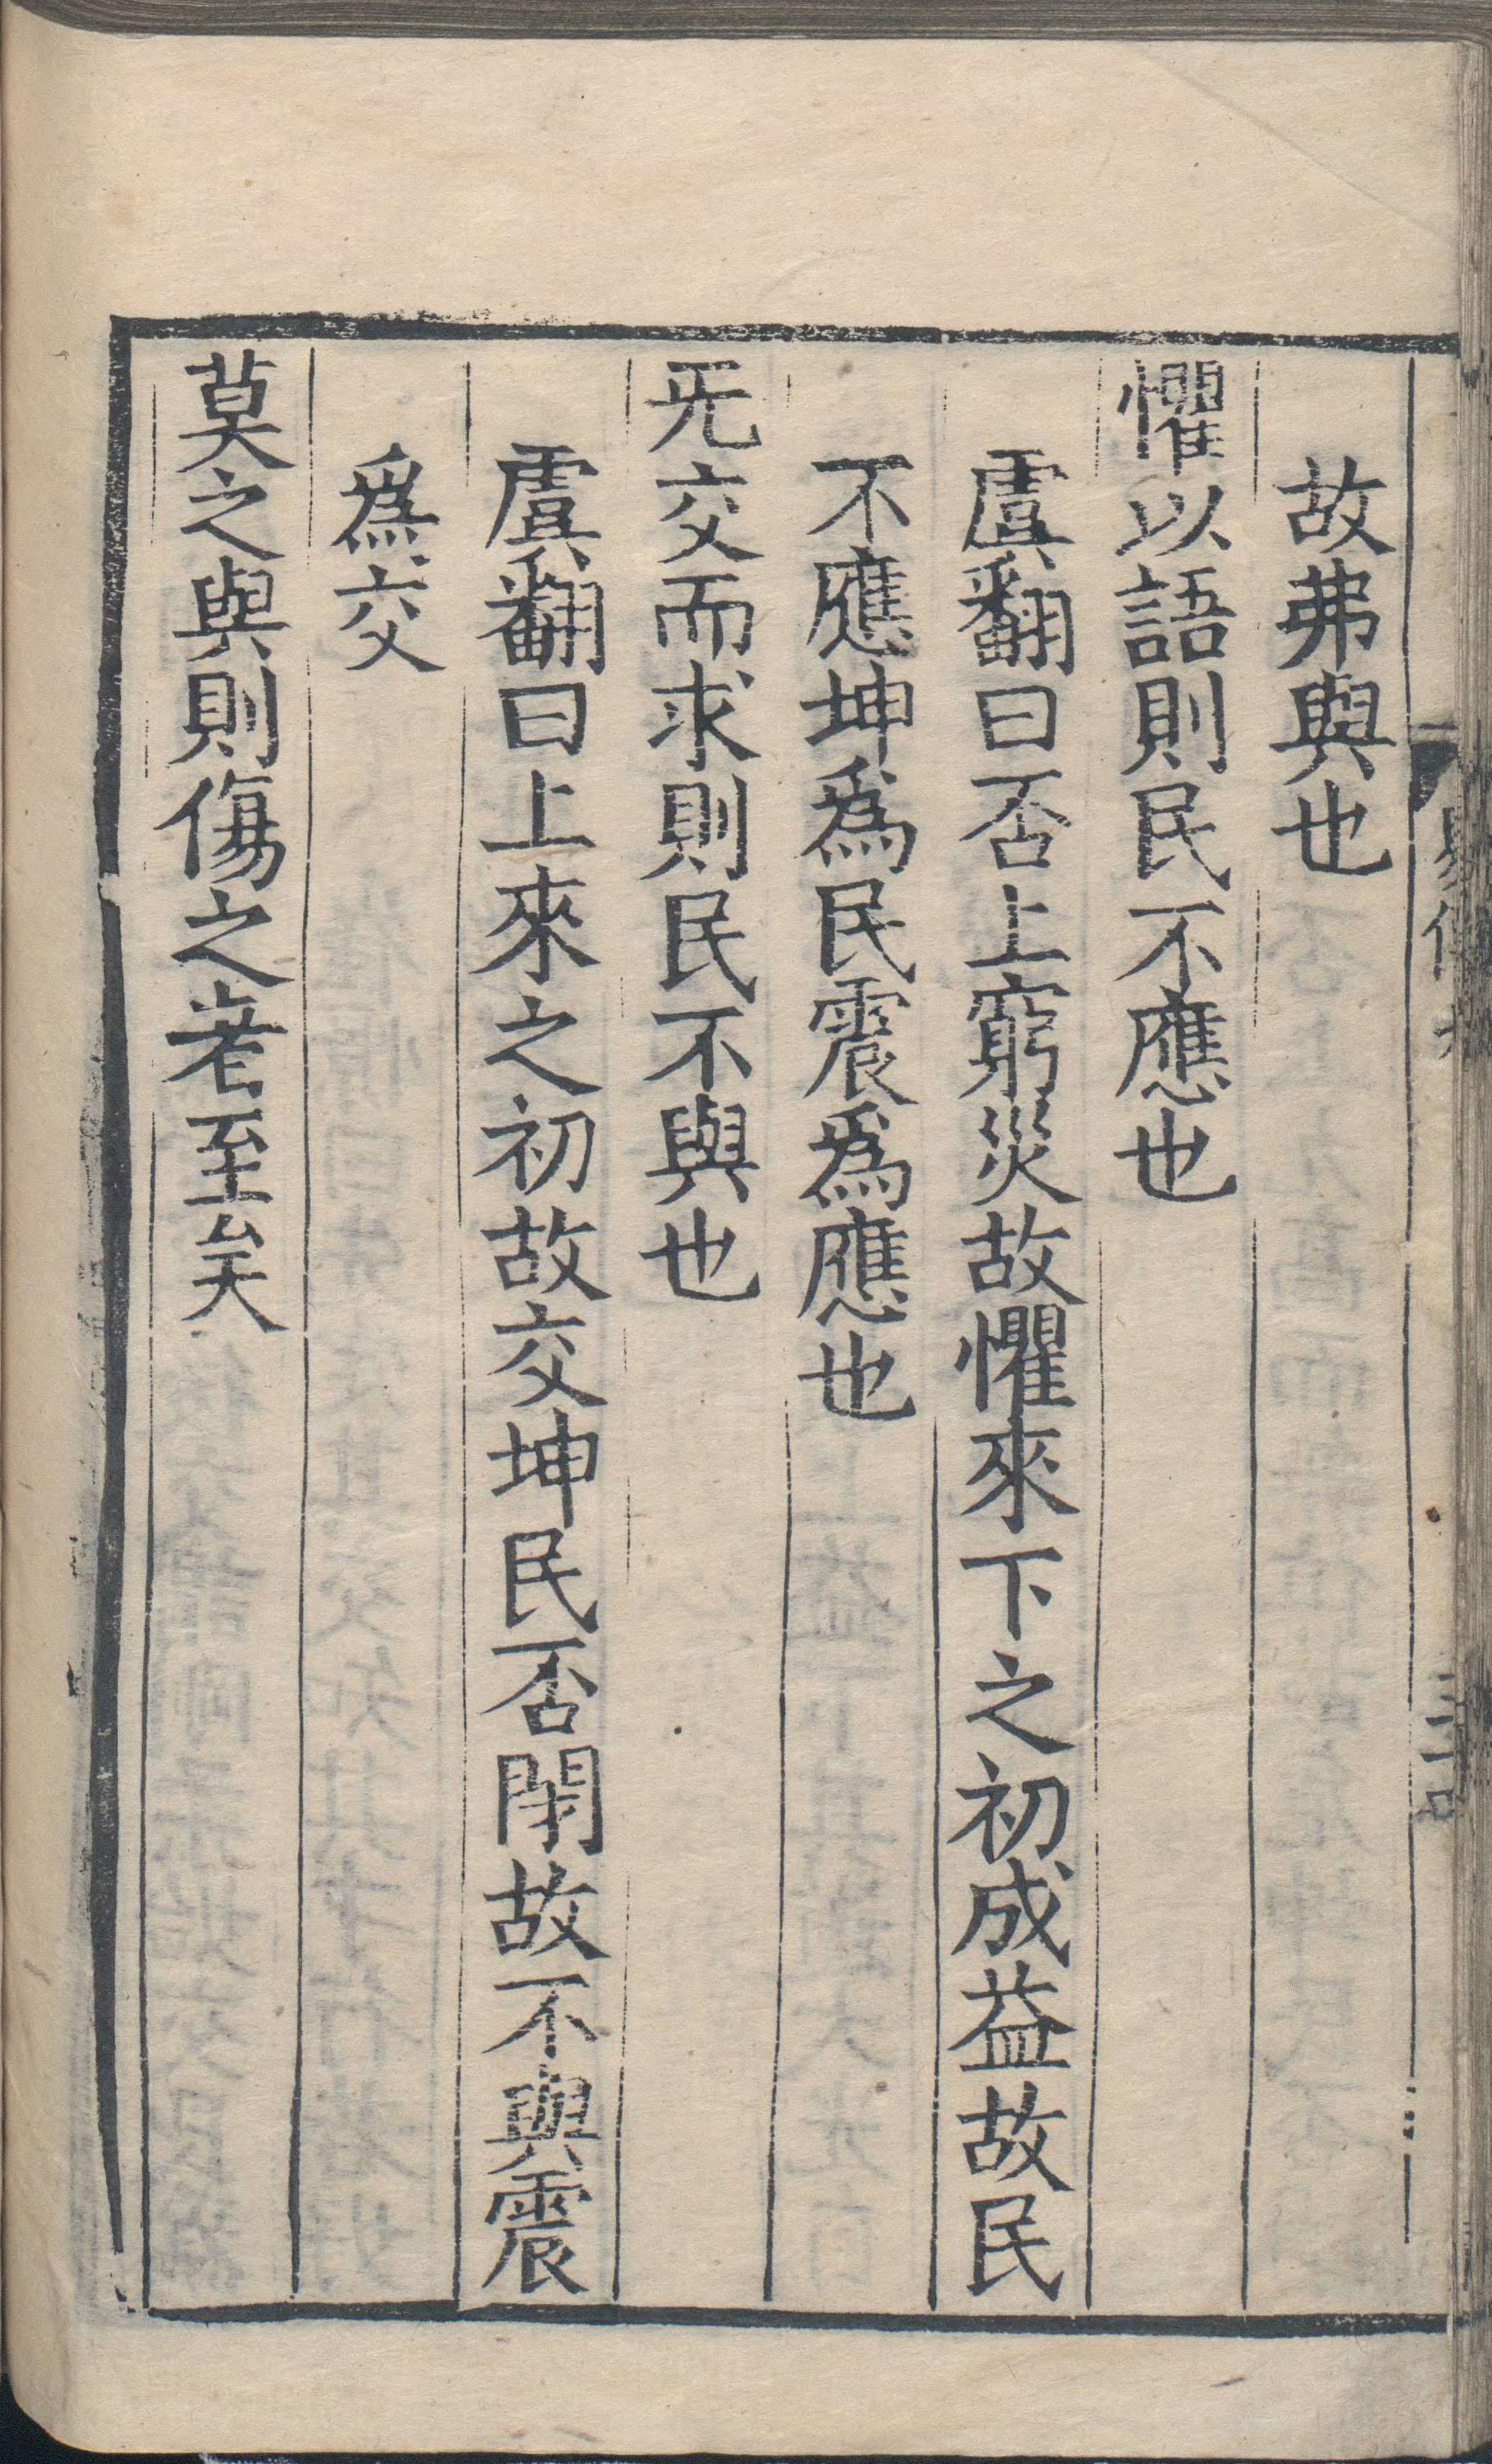 故弗與也
懼以語則民不應也
虞翻曰否上窮災故懼來下之初成益故民
不應坤爲民震爲應也
无交而求則民不與也
虞翻曰上來之初故交坤民否閉故不與震
爲交
莫之與則傷之者至矣